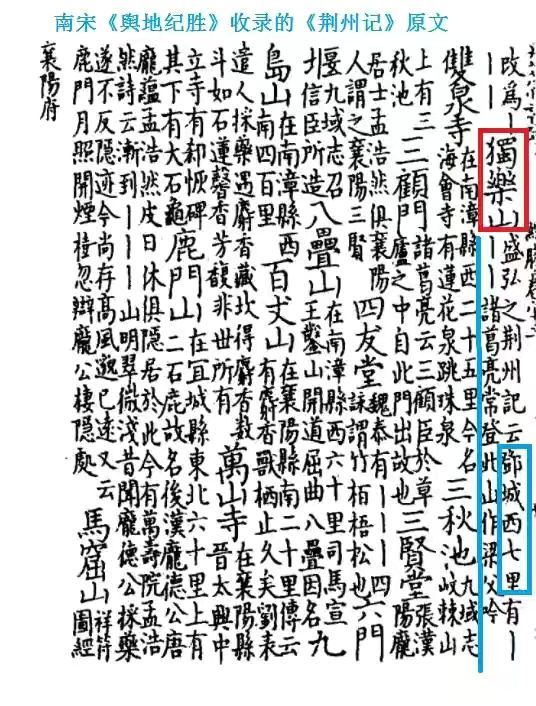 南宋《舆地纪胜》收录的《荆州记》原文
改爲丨
丨丨
獨樂山
盛弘之荆州記云鄧城西七里有丨
丨丨諸葛亮常登此山作梁父吟
雙泉寺
在南漳縣西二十五里今名
海會寺有蓮花泉跳珠泉
三秋池
九域志
岐棘山
上有三
秋池
三顧門
諸葛亮云三顧臣於草
廬之中自此門出故也
三賢堂
張漢
陽龐
居士孟浩然俱襄陽
人謂之襄陽三賢
四友堂
魏泰有丨丨丨四
詠謂竹栢梧松也
六門
堰
九域志召
信臣所造
八疊山
在南漳縣西六十里司馬宣
王鑿山開道屈曲八疊因名
九
島山
在南漳縣西
南四百里
百丈山
在襄陽縣南二十里傳云
有麝香獸栖止久矣劉表
遣人採藥遇麝香藏坎得麝香數
斗如石蓮馨香芳馥非世所有
萬山寺
在襄陽縣
晉太興中
立寺有郄恢碑
其下有大石龜
鹿門山
在宜城縣東北六十里上有
二石鹿故名後漢龐德公唐
龐蘊孟浩然皮日休俱隱居於此今有萬壽院孟浩
然詩云漸到丨丨山明翠微淺昔聞龐德公採藥
遂不反隱迹今尚存高風邈已遠又云
鹿門月照開煙樹忽辯龐公棲隱處
馬窟山
祥符
圖經
襄陽府